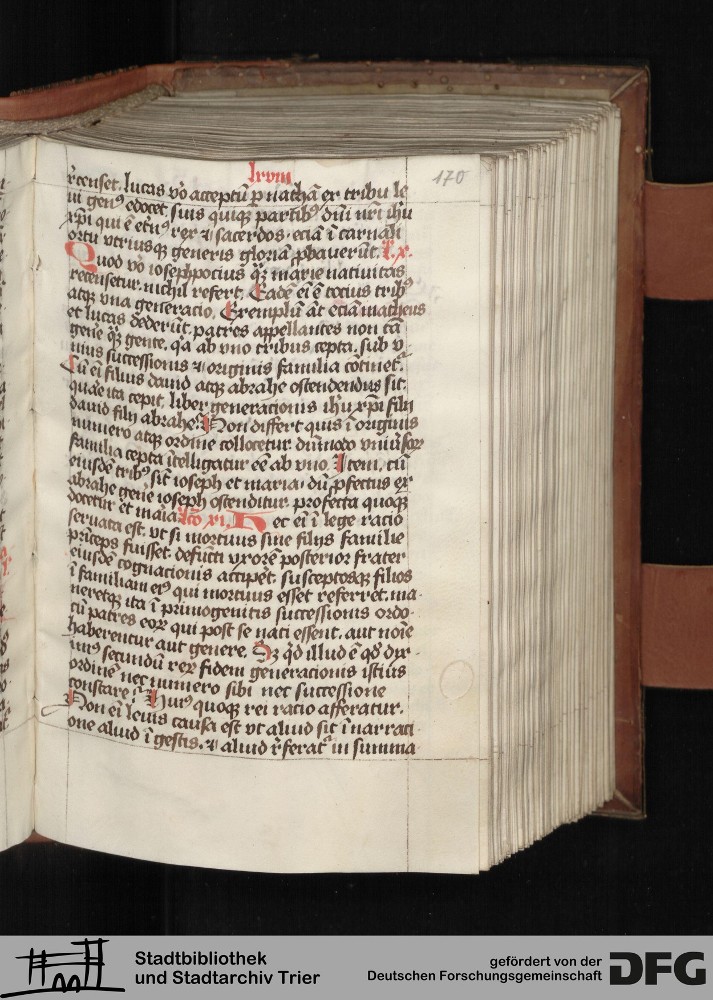 lxviii
170
r̄censet. lucas v̊o acceptū ꝑ nathā ex tribu le
ui gen⁹ edocet. suis quiq; partib⁹ dn̄i nr̄i ih̄u
xp̄i qui ē et̄n⁹ rex ⁊ sacerdos. eciā ī carnali
ortu utriusq; generis gloriā ꝓbauerūt. x.
Quod v̊o ioseph pocius q̄ꝫ marie natiuitas
recensetur. nichil refert. Eadē ei ē tocius trib⁹
atq; vna generacio. Exemplū āt eciā matheus
et lucas dederūt. patres appellantes non tā
gene q̄ꝫ gente. qa ab vno tribus cepta. sub v
nius successionis ⁊ originis familia cōtinet̄.
Cū ei filius dauid atq; abrahe ostendendus sit.
quae ita cepit. liber generacionis ih̄u xp̄i filij
dauid filij abrahe. Non differt quis ī originis
numero atq; ordine collocetur. dūmodo vniūsoꝝ
familia cepta ītelligatur eē ab vno. Item. cū
eiusdē trib⁹ sīt ioseph et maria. dū ꝓfectus ex
abrahe gene ioseph ostenditur. profecta quoq;
docetur et maria. xi. Hec ei ī lege racio
seruata est. vt si mortuus sine filijs familie
prīceps fuisset. defūcti vxorē posterior frater
eiusdē cognacionis accipet. susceptosq; filios
ī familiam ei⁹ qui mortuus esset referret. ma
neretq; ita ī primogenitis successionis ordo.
cū patres eoꝝ qui post se nati essent. aut noīe
haberentur aut genere. Sꝫ qd illud ē qd dix
im⁹ secundū rex fidem generacionis istius
ordinē nec numero sibi nec successione
constare. Hui⁹ quoq; rei racio afferatur.
Non ei leuis causa est vt aliud sit ī narrati
one aliud ī gestis. ⁊ aliud r̄ferat̄ in summa
Stadtbibliothek
und Stadtarchiv Trier
gefördert von der
Deutschen Forschungsgemeinschaft
DFG